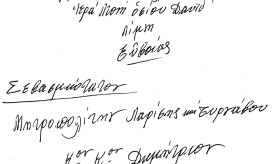 Ἱερά Μονή ὁσίου Δαυίδ
Λίμνη
Εὐβοίας
Σεβασμιώτατον
Μητροπολίτην Λαρίσης καί Τυρνάβου
κον κον Δημήτριον